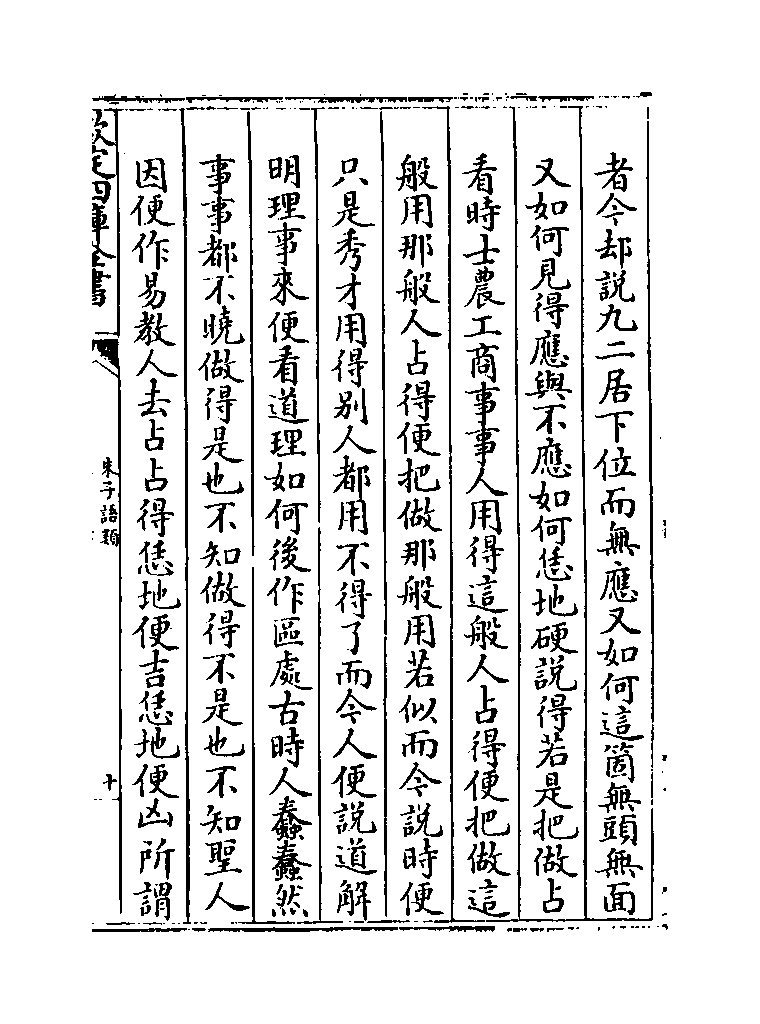 者今却説九二居下位而無應又如何這箇無頭無面
又如何見得應與不應如何恁地硬説得若是把做占
看時士農工商事事人用得這般人占得便把做這
般用那般人占得便把做那般用若似而今説時便
只是秀才用得别人都用不得了而今人便説道解
明理事來便看道理如何後作區處古時人蠢蠢然
事事都不曉做得是也不知做得不是也不知聖人
因便作易教人去占占得恁地便吉恁地便凶所謂
欽定四庫全書
朱子語類
十